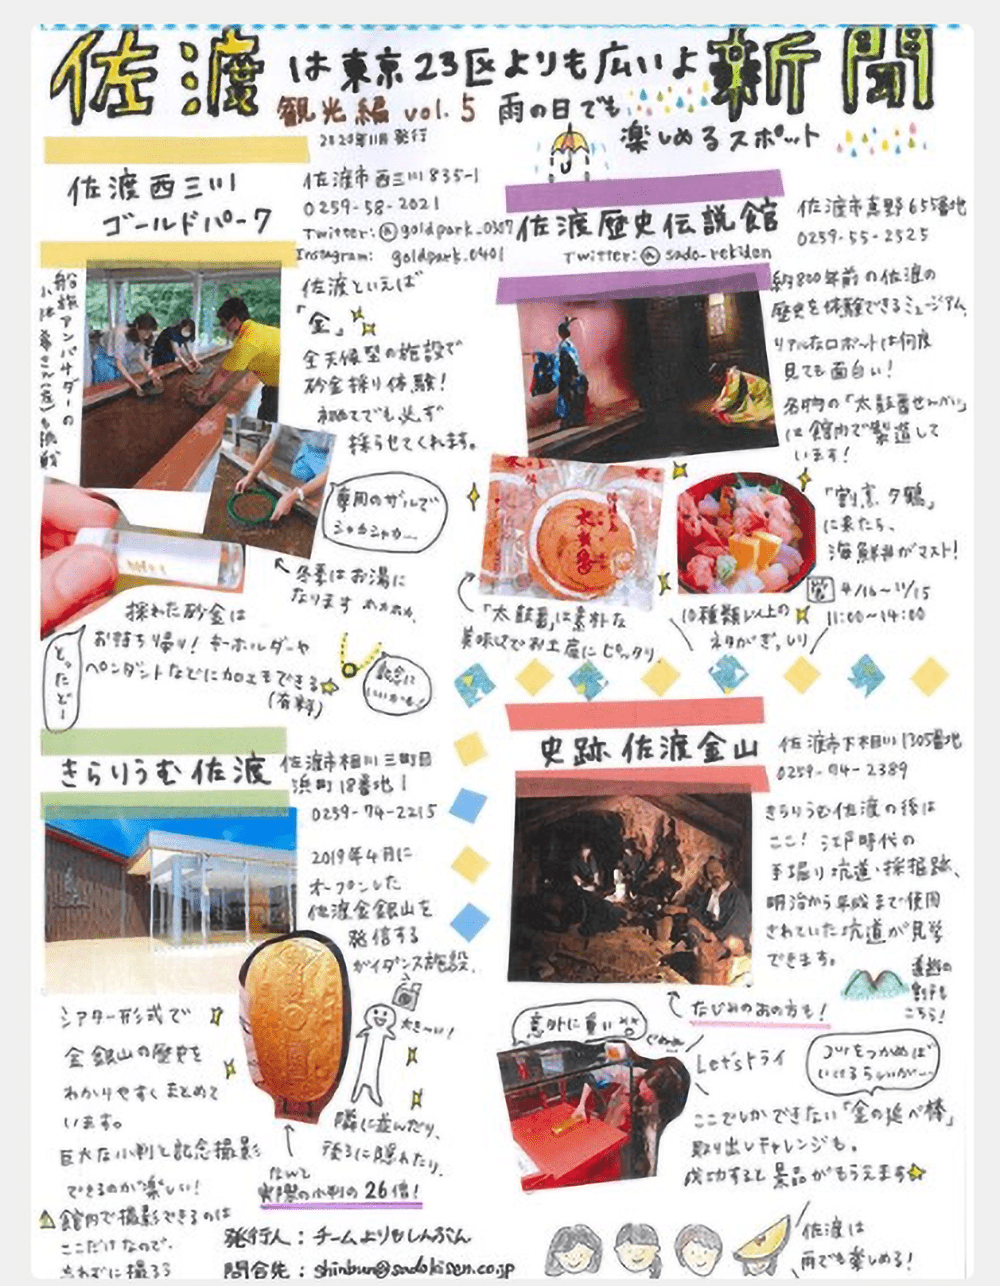 佐渡は東京23区よりも広いよ新聞
観光編 vol.5 雨の日でも
楽しめるスポット
2020年11月発行
佐渡西三川
ゴールドパーク
佐渡市西三川835-1
0259-58-2021
Twitter:@goldpark_0387
Instagram: goldpark.0401
船旅アンバサダーの
佐渡といえば
「金」
全天候型の施設で
砂金採り体験!
初めてでも必ず
採らせてくれます。
専用のザルで
シャカシャカ…
冬季はお湯に
なります ホカホカ
採れた砂金は
お持ち帰り!キーホルダーや
ペンダントなどに加工もできる
(有料)
とったどー!
記念に
いいかも!!
佐渡歴史伝説館
Twitter:@sado_rekiden
佐渡市真野655番地
0259-55-2525
約800年前の佐渡の
歴史を体験できるミュージアム。
リアルなロボットは何度
見ても面白い!
名物の「太鼓番せんべい」
は館内で製造して
います!
「太鼓番」は素朴な
美味しさでお土産にピッタリ
「割烹 夕鶴」
に来たら、
海鮮丼がマスト!
営 4/16〜11/15
11:00〜14:00
10種類以上の
ネタがぎっしり
きらりうむ佐渡
佐渡市相川三町目
浜町18番地1
0259-74-2215
2019年4月に
オープンした
佐渡金銀山を
発信する
ガイダンス施設。
シアター形式で
金銀山の歴史を
わかりやすくまとめて
います。
巨大な小判と記念撮影
できるのが楽しい!
大き〜い!
隣に並んだり、
後ろに隠れたり。
なんと
実際の小判の26倍!
館内で撮影できるのは
ここだけなので、
忘れずに撮ろう
史跡 佐渡金山
佐渡市下相川1305番地
0259-74-2389
きらりうむ佐渡の後は
ここ!江戸時代の
手掘り坑道・採掘跡、
明治から平成まで使用
されていた坑道が見学
できます。
道遊の
割戸も
こちら!
なじみのあの方も!
意外に重い
Let'sトライ
コツをつかめば
いけるらしいが…
ここでしかできない「金の延べ棒」
取り出しチャレンジも。
成功すると景品がもらえます
発行人:チームよりもしんぶん
問合先:shinbun@sadokisen.co.jp
佐渡は
雨でも楽しめる!